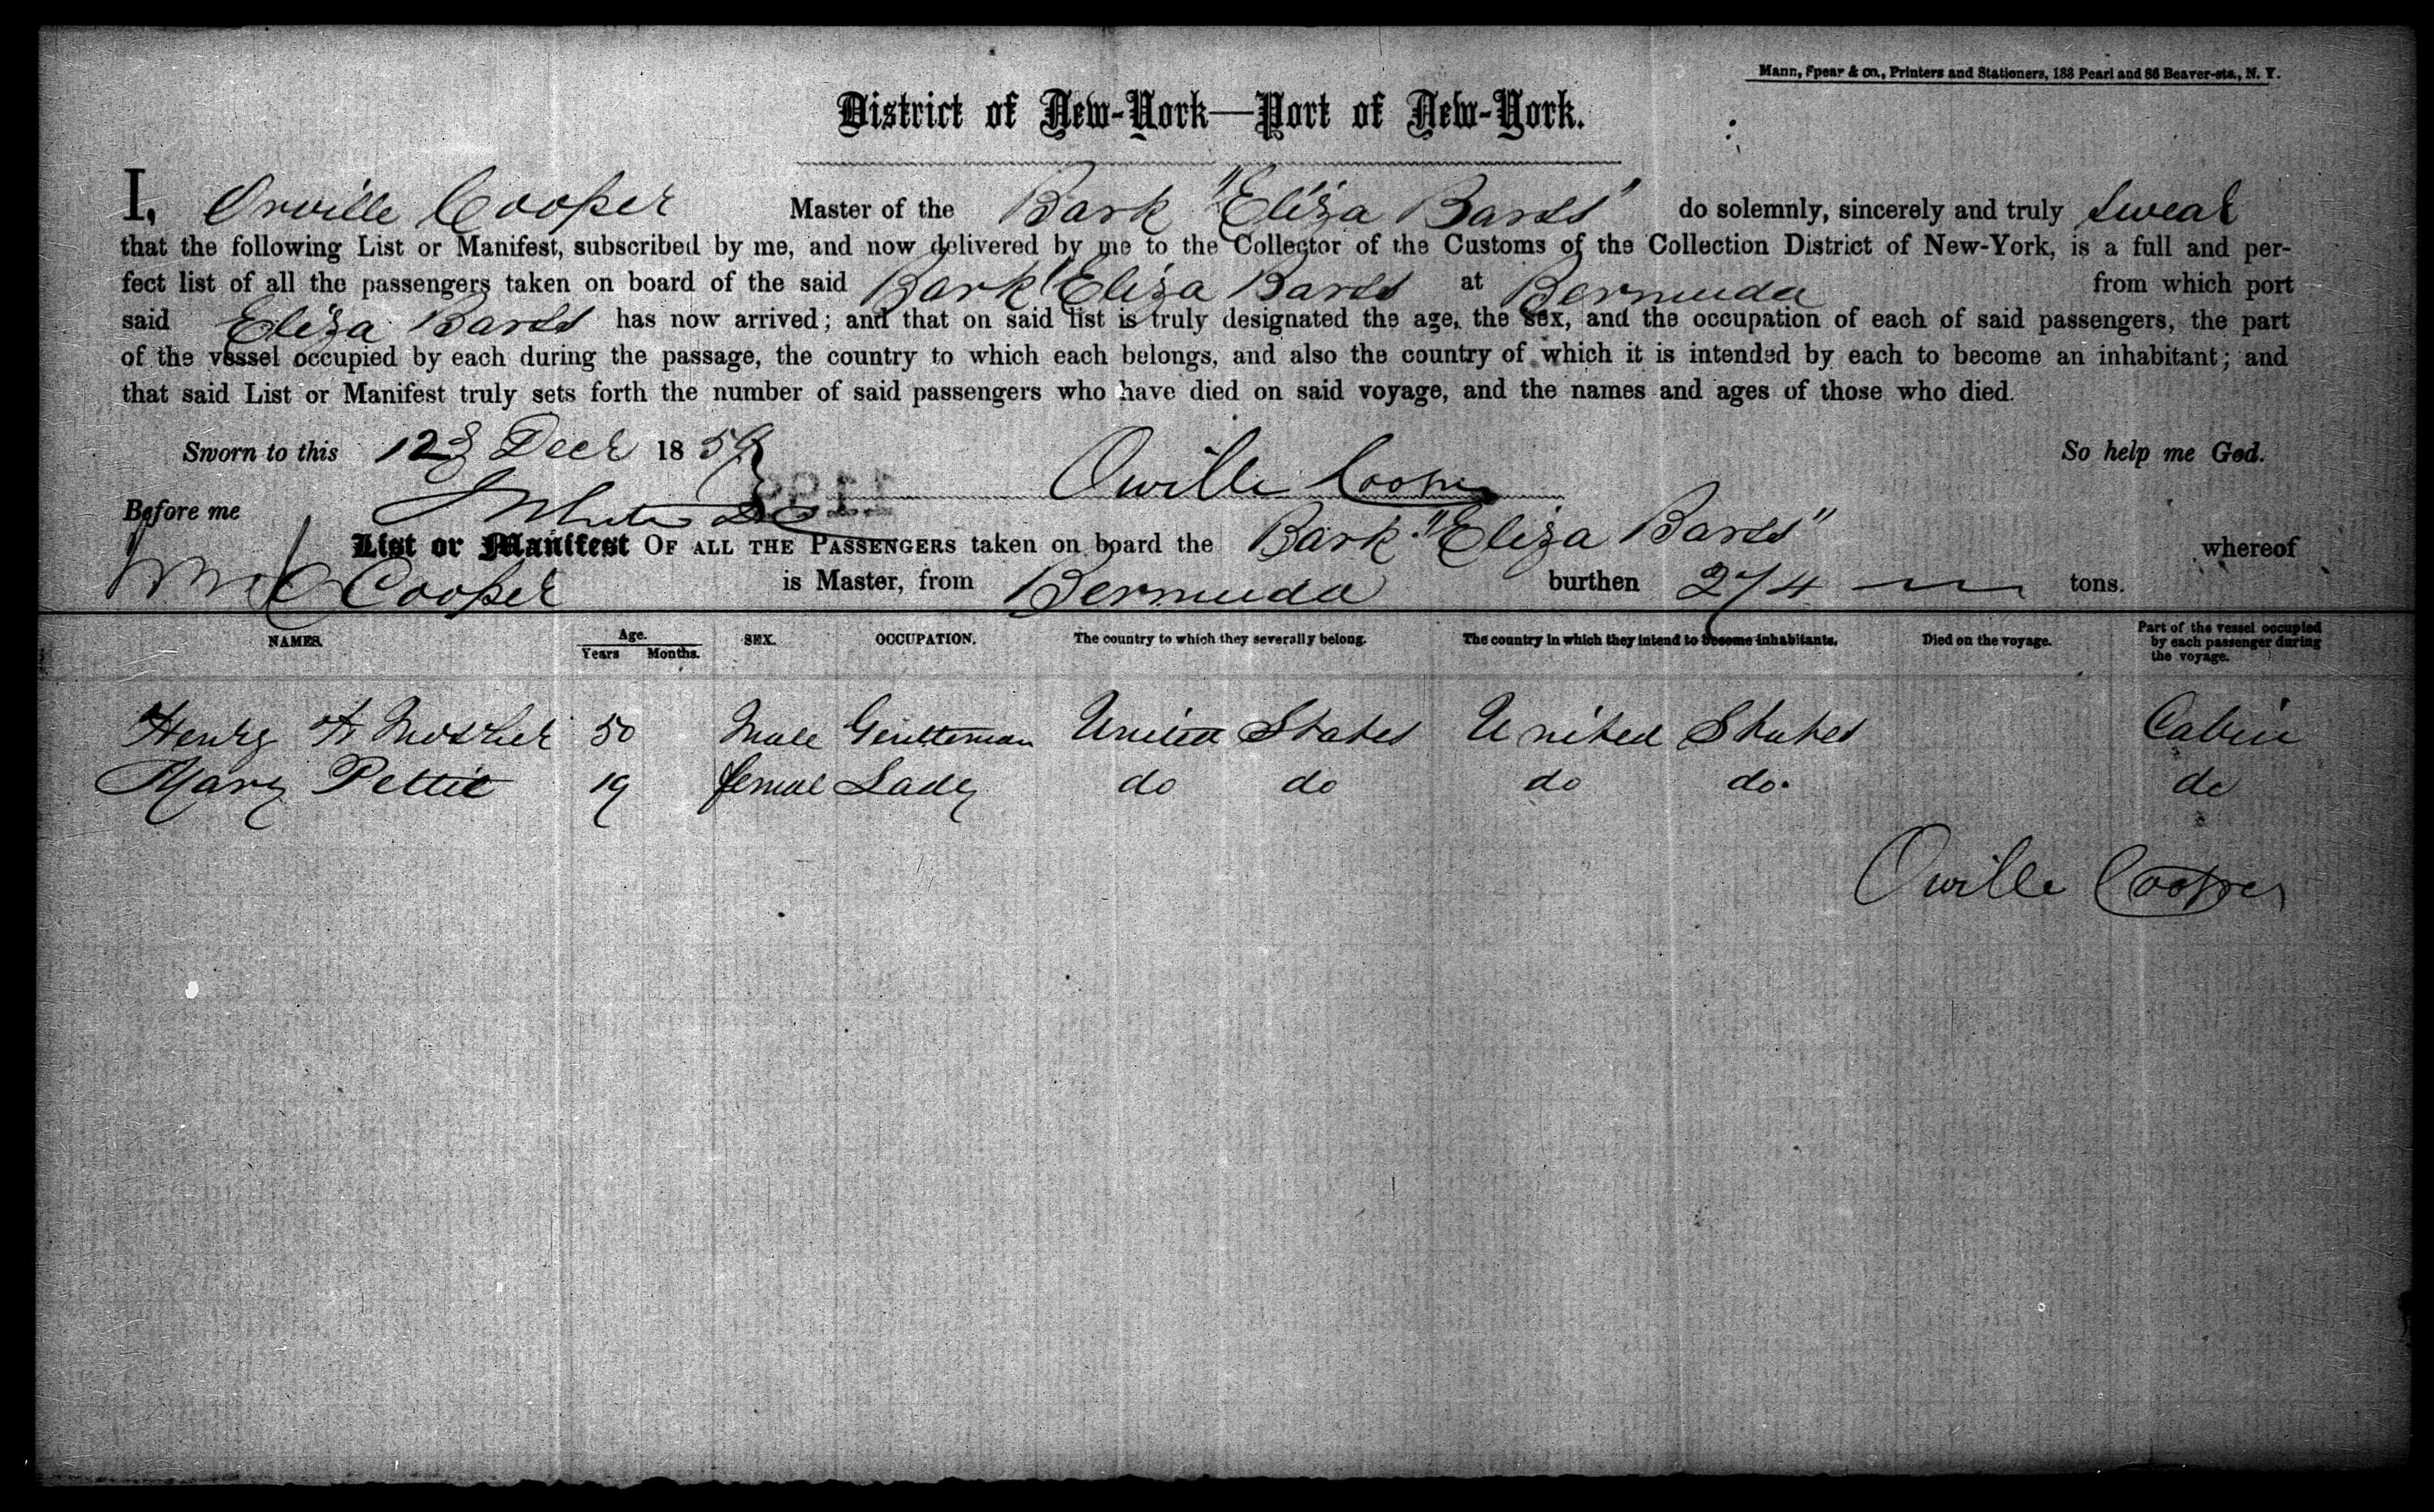 Mann, Spear & Co., Printers and Stationers, 188 Pearl and 86 Beaver-sts., N. Y.
District of New-York—Port of New-York.
I, Orville Cooper Master of the Bark "Eliza Barss" do solemnly, sincerely and truly swear
that the following List or Manifest, subscribed by me, and now delivered by me to the Collector of the Customs of the Collection District of New-York, is a full and per-
fect list of all the passengers taken on board of the said Bark "Eliza Barss at Bermuda from which port
said Eliza Barss has now arrived; and that on said list is truly designated the age, the sex, and the occupation of each of said passengers, the part
of the vessel occupied by each during the passage, the country to which each belongs, and also the country of which it is intended by each to become an inhabitant; and
that said List or Manifest truly sets forth the number of said passengers who have died on said voyage, and the names and ages of those who died.
Sworn to this 12 Decr 1859 Orville Cooper So help me God.
Before me
List or Manifest OF ALL THE PASSENGERS taken on board the Bark "Eliza Barss" whereof
Cooper is Master, from Bermuda burthen 274 tons.
NAMES. Age. Years Months. SEX. OCCUPATION. The country to which they severally belong. The country in which they intend to become inhabitants. Died on the voyage. Part of the vessel occupied by each passenger during the voyage.
Henry A Mosher 50 Male Gentleman United States United States Cabin
Mary Pettit 19 femal Lady do do do do. do
Orville Cooper